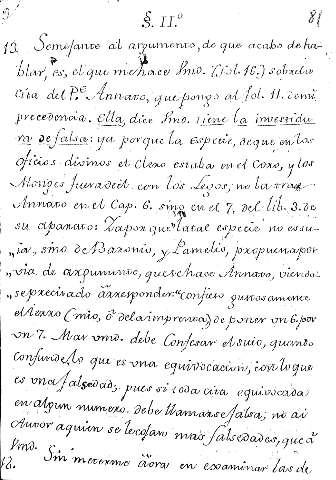 §. II.º
81
13. Semejante al argumento, de que acabo de ha-
blar, es, el que me hace Vmd. (fol. 16.) sobre la
cita del P.e Annato, que pongo al fol. 11. de mi
precedente. Ella, dice Vmd. tiene la investidu-
ra de falsa: ya porque la especie, de que en los
oficios divinos el Clero estaba en el Coro, y los
Monges fuera de él con los Legos, no la trae
Annato en el Cap. 6. sino en el 7. del lib. 3. de
su aparato: Ya porque la tal especie no es su-
„ia, sino de Baronio, y Pamelio, propuesta por
„via de argumento, que se hace Annato, viendo-
„se precisado à responder. Confieso gustosamente
el yerro (mio, ò de la imprenta) de poner un 6. por
un 7. Mas Vmd. debe confesar el suio, quando
confunde lo que es una equivocacion, con lo que
es una falsedad; pues si toda cita equivocada
en algun numero debe llamarse falsa; no ai
Autor a quien se le cojan mas falsedades, que à
Vmd.
Sin meterme aòra en examinar las de